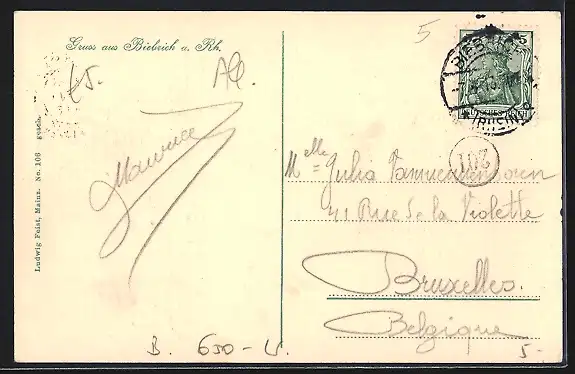 Gruss aus Biebrich a. Rh.
5
All.
Maurice
Ludwig Feist, Mainz. No. 106 gesch.
5
BIEBRICH
(RHEIN)
201
Melle Julia
41 Rue de la Violette
Bruxelles.
Belgique
B. 650-
5-